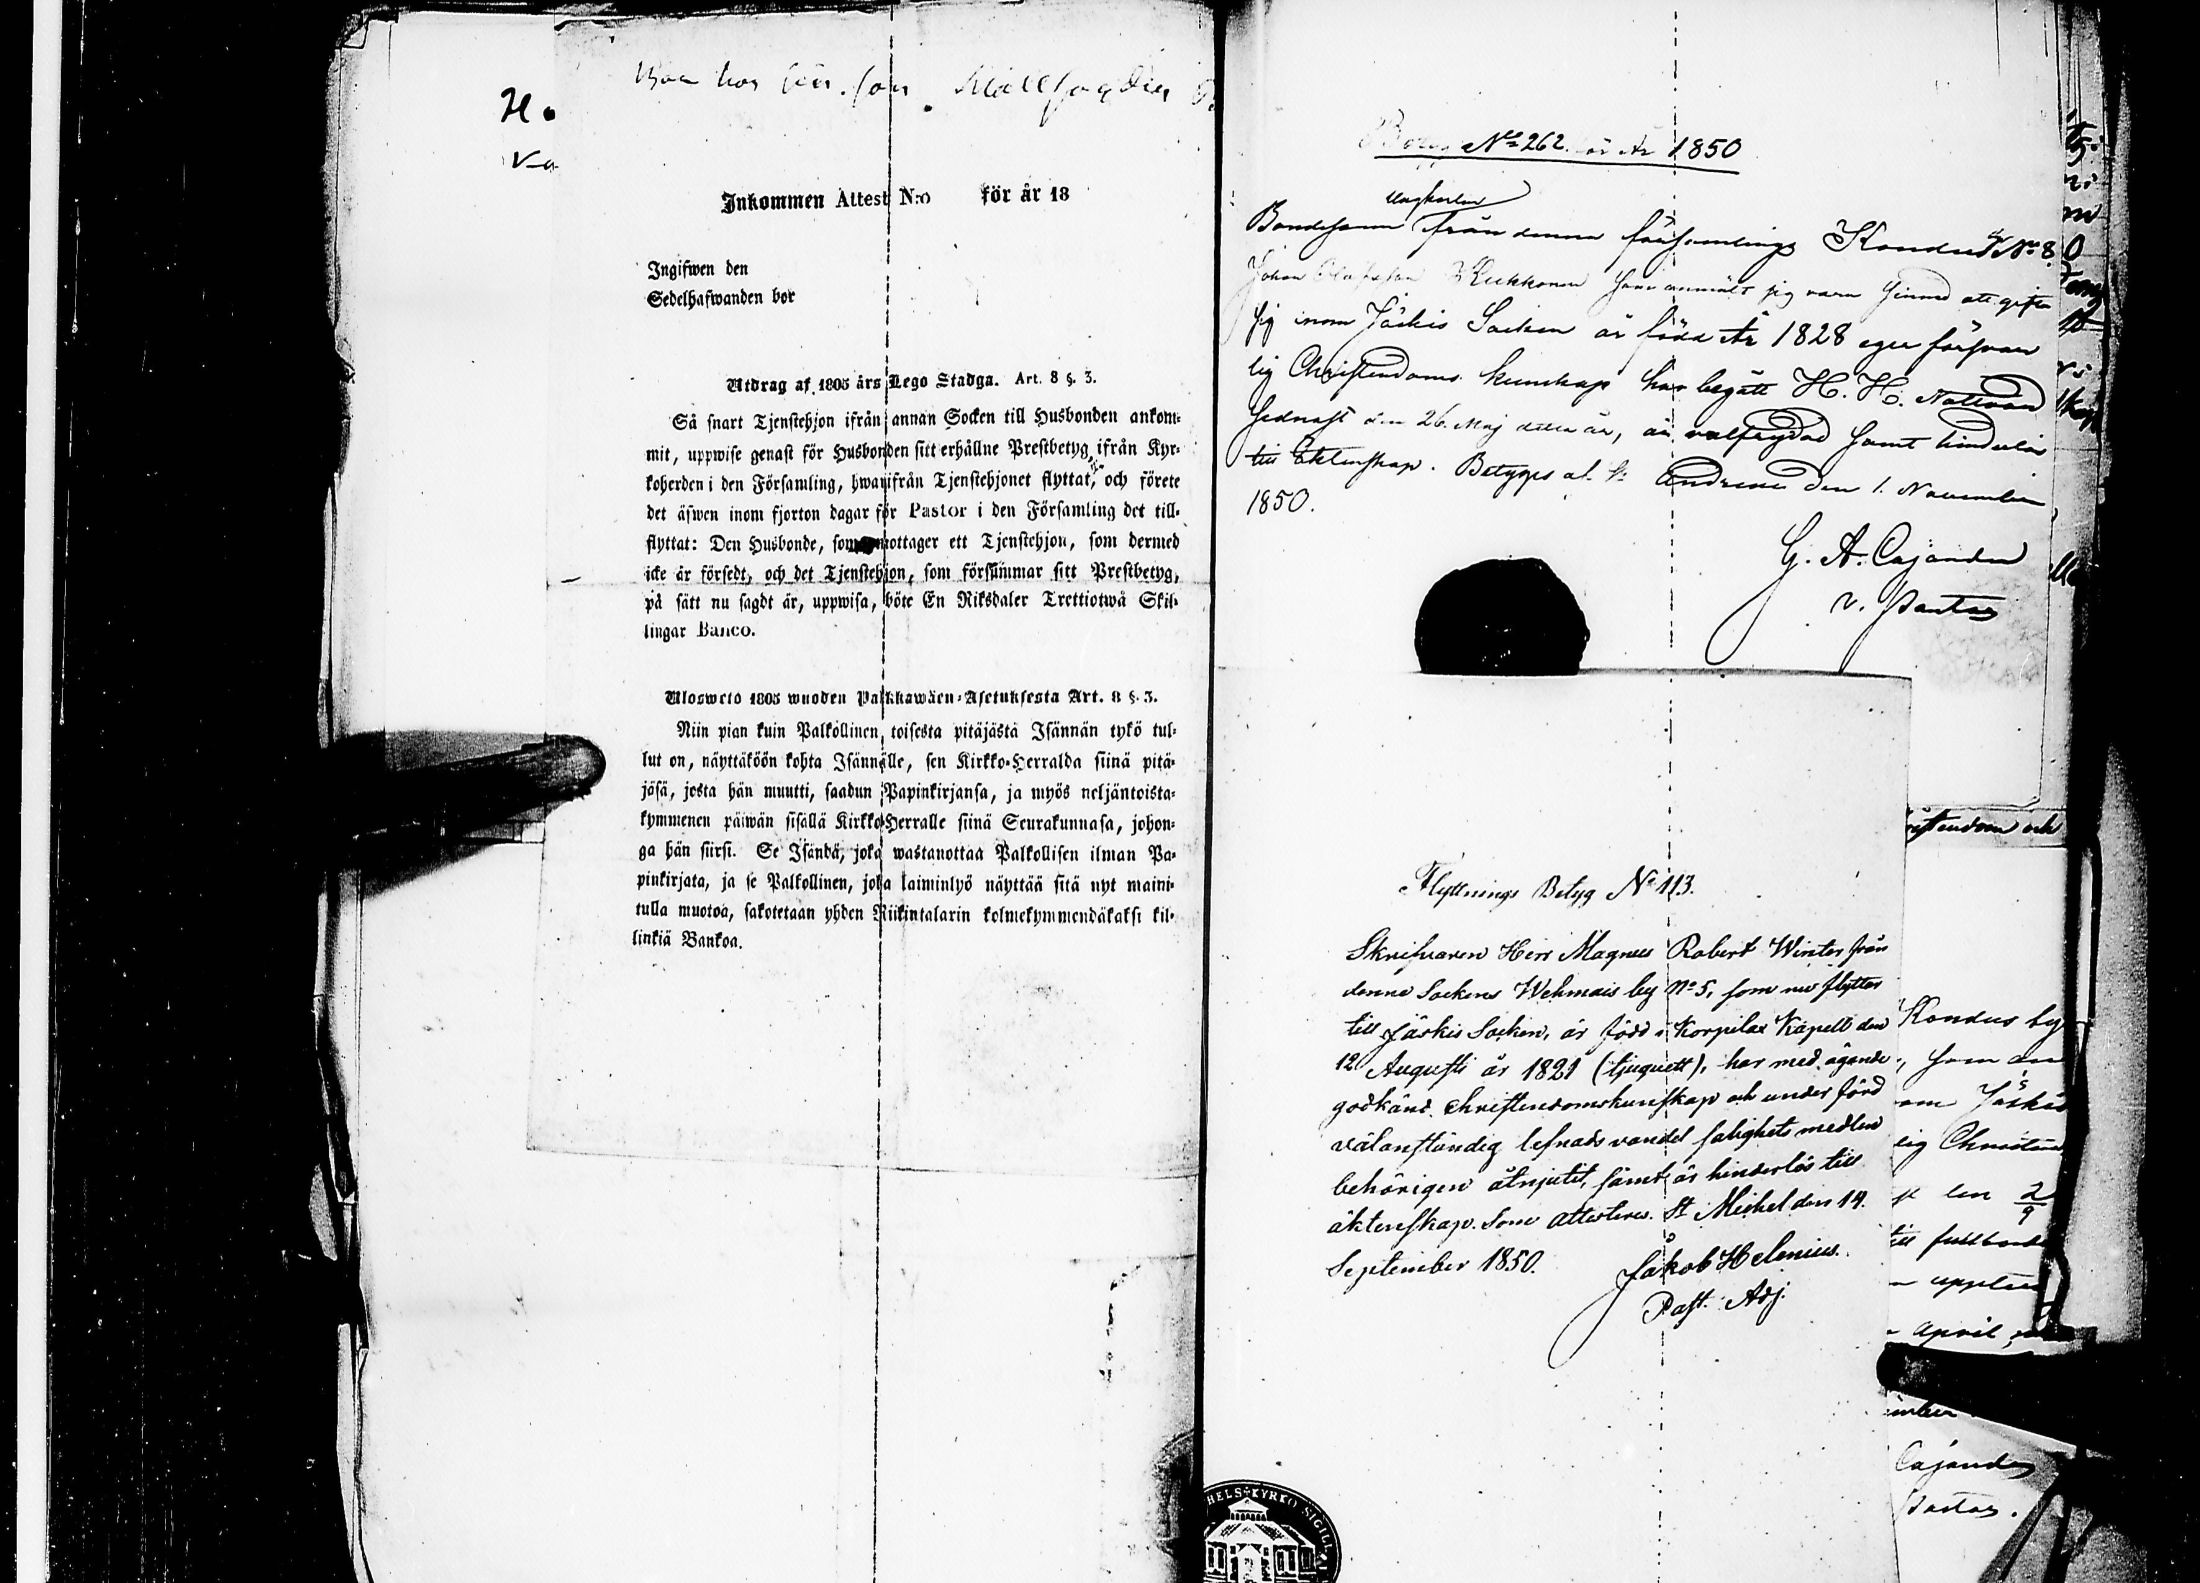 Bor hos sin son
Inkommen Attest N:o för år 18
Ingifwen den
Sedelhafwanden bor
Utdrag af 1805 års Lego Stadga. Art. 8 §. 3.
Så snart Tjenstehjon ifrån annan Socken till Husbonden ankom-
mit, uppwise genast för Husbonden sitt erhållne Prestbetyg ifrån Kyr-
koherden i den Församling, hwarifrån Tjenstehjonet flyttat, och förete
det äfwen inom fjorton dagar för Pastor i den Församling det till-
flyttat: Den Husbonde, som mottager ett Tjenstehjon, som dermed
icke är försedt, och det Tjenstehjon, som försummar sitt Prestbetyg,
på sätt nu sagdt är, uppwisa, böte En Riksdaler Trettiotwå Skil-
lingar Banco.
Ulosweto 1805 wuoden Palkkawäen-Asetuksesta Art. 8 §. 3.
Niin pian kuin Palkollinen toisesta pitäjästä Isännän tykö tul-
lut on, näyttäköön kohta Isännälle, sen Kirkko-Herralda siinä pitä-
jäsä, josta hän muutti, saadun Papinkirjansa, ja myös neljäntoista-
kymmenen päiwän sisällä Kirkko-Herralle siinä Seurakunnasa, johon-
ga hän siirsi. Se Isändä, joka wastanottaa Palkollisen ilman Pa-
pinkirjata, ja se Palkollinen, joka laiminlyö näyttää sitä nyt maini-
tulla muotoa, sakotetaan yhden Riikintalarin kolmekymmendäkaksi kil-
linkiä Bankoa.
Betyg No 262 för År 1850
ungkarlen
Bondesonen från denna församlings Kondus by No 8.
Johan Olofsson Kukkonen som anmält sig vara sinnad att gifta
sig inom Jäskis Socken är född År 1828 eger försvar
lig Christendoms kunskap har begått H. H. Nattvard
sednast den 26 Maj detta år, är välfrejdad samt hinderlös
till Ektenskap. Betygas af St Andreae den 1. November
1850.
G. A. Cajander
v. Pastor
Flyttnings Betyg No 113.
Skrifvaren Herr Magnus Robert Winter från
denna Sockens Wehmais by No 5, som nu flyttar
till Jäskis Socken, är född i Korpilax Kapell den
12 Augusti år 1821 (tjuguett), har med ägande
godkänd christendomskunskap och under förd
välanständig lefnadsvandel salighets medlen
behörigen åtnjutit, samt är hinderlös till
äktenskap. Som attesteras. St Michel den 14.
September 1850.
Jakob Helenius.
Past. Adj.
istendom och
Kondus by
, som an
om Jäskis
lig Christen
den 2/9
till fullbord
April
Cajander
Pastor.
HELS KYRKO SIGILL